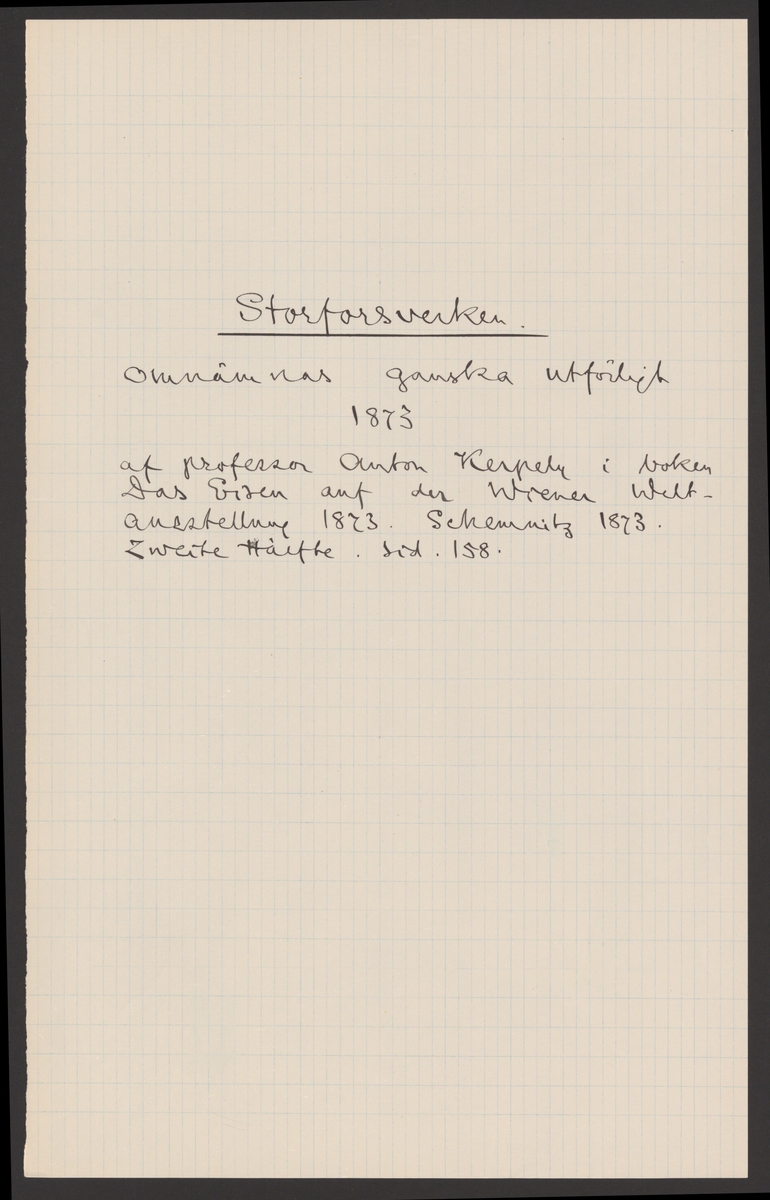 Storforsverken.
omnämnas ganska utförligt
1873
af professor Anton Kerpely i boken
Das Eisen auf der Wiener Welt-
ausstellung 1873. Schemnitz 1873.
Zweite Hälfte. sid. 158.